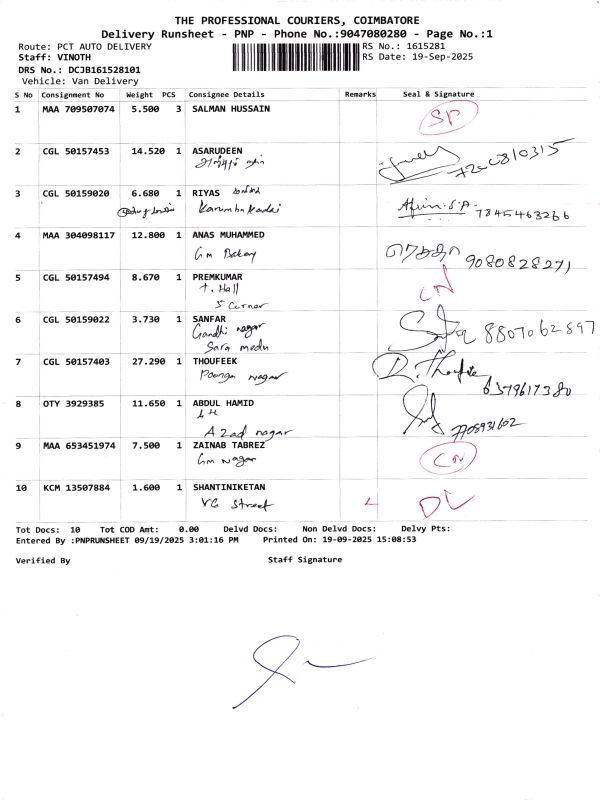 THE PROFESSIONAL COURIERS, COIMBATORE
Delivery Runsheet - PNP - Phone No.:9047080280 - Page No.:1
Route: PCT AUTO DELIVERY RS No.: 1615281
Staff: VINOTH RS Date: 19-Sep-2025
DRS No.: DCJB161528101
Vehicle: Van Delivery
S No Consignment No Weight PCS Consignee Details Remarks Seal & Signature
1 MAA 709507074 5.500 3 SALMAN HUSSAIN
SP
2 CGL 50157453 14.520 1 ASARUDEEN
3 CGL 50159020 6.680 1 RIYAS
Karumbukadai
Afrin.S.A. 7845463266
4 MAA 304098117 12.800 1 ANAS MUHAMMED
Gm Bakery 9080828271
5 CGL 50157494 8.670 1 PREMKUMAR
T. Hall CN
5 Corner
6 CGL 50159022 3.730 1 SANFAR
Gandhi nagar 8807062897
Sara medu
7 CGL 50157403 27.290 1 THOUFEEK
Poonga nagar 6379617380
8 OTY 3929385 11.650 1 ABDUL HAMID
Azad nagar 7708931602
9 MAA 653451974 7.500 1 ZAINAB TABREZ
Gm nagar CN
10 KCM 13507884 1.600 1 SHANTINIKETAN
VG Street DL
Tot Docs: 10 Tot COD Amt: 0.00 Delvd Docs: Non Delvd Docs: Delvy Pts:
Entered By :PNPRUNSHEET 09/19/2025 3:01:16 PM Printed On: 19-09-2025 15:08:53
Verified By Staff Signature